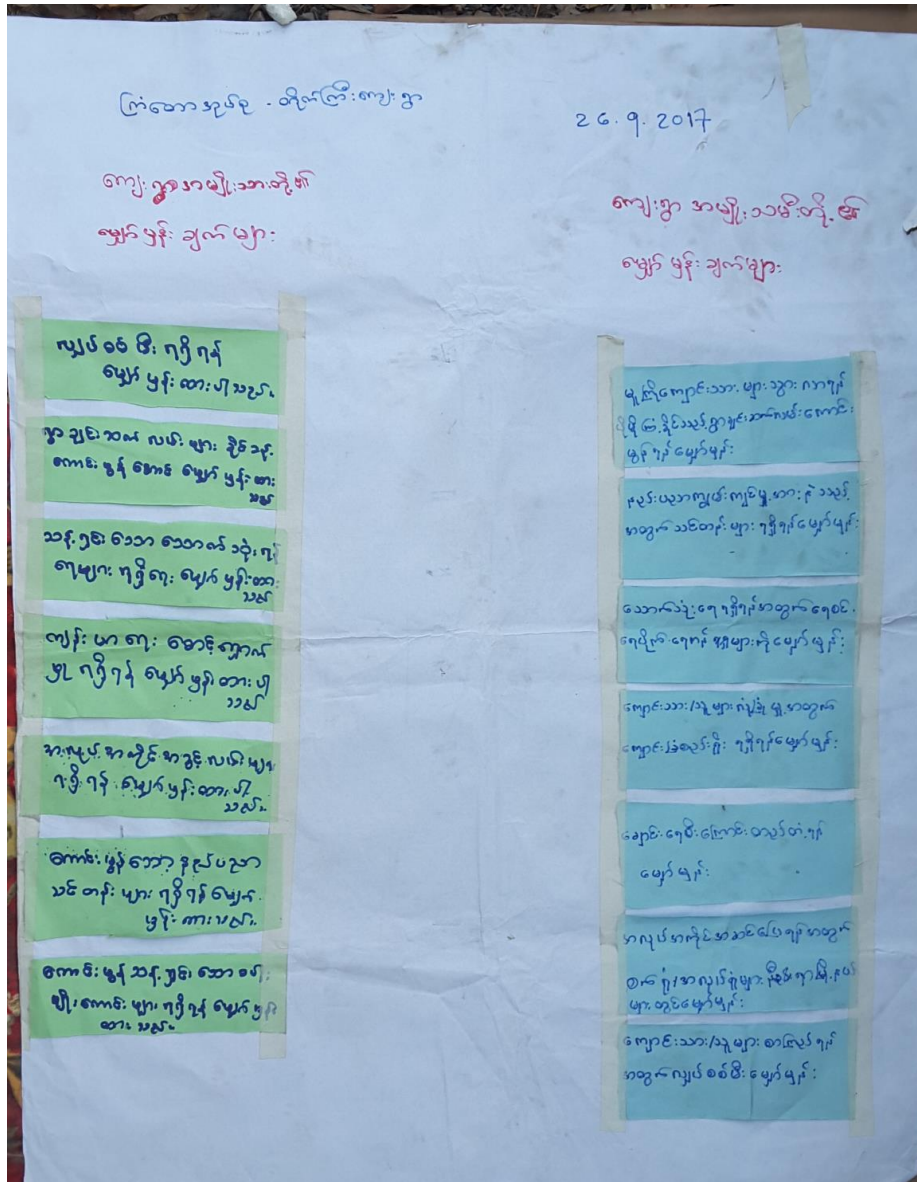 ကြံတောအုပ်စု - တိုက်ကြီးကျေးရွာ
26.9.2017
ကျေးရွာအမျိုးသားတို့၏
မျှော်မှန်းချက်များ
လျှပ်စစ်မီးရရှိရန်
မျှော်မှန်းထားပါသည်။
ရွာချင်းဆက်လမ်းများ ခိုင်ခန့်
ကောင်းမွန်အောင် မျှော်မှန်းထား
သည်
သန့်ရှင်းသော သောက်သုံးရန်
ရေများရရှိရေး မျှော်မှန်းထား
သည်
ကျန်းမာရေး စောင့်ရှောက်
မှု ရရှိရန် မျှော်မှန်းထားပါ
သည်
အလုပ်အကိုင်အခွင့်လမ်းများ
ရရှိရန် မျှော်မှန်းထားပါ
သည်။
ကောင်းမွန်သော နည်းပညာ
သင်တန်းများ ရရှိရန် မျှော်
မှန်းထားသည်။
ကောင်းမွန်သန့်ရှင်းသော စပါး
မျိုးကောင်းများ ရရှိရန် မျှော်မှန်း
ထားသည်။
ကျေးရွာ အမျိုးသမီးတို့၏
မျှော်မှန်းချက်များ
မူကြိုကျောင်းသားများသွားလာရန်
ခိုင်သည့် ရွာချင်းဆက်လမ်းကောင်း
မွန်ရန်မျှော်မှန်း
နည်းပညာကျွမ်းကျင်မှု အားနဲသည့်
အတွက် သင်တန်းများ ရရှိရန်မျှော်မှန်း
သောက်သုံးရေရရှိရန်အတွက် ရေစင်၊
ရေပိုက်၊ ရေကန် များကိုမျှော်မှန်း
ကျောင်းသား/သူများ လုံခြုံမှုအတွက်
ကျောင်းခြံစည်းရိုး ရရှိရန်မျှော်မှန်း
ချောင်းရေစီးကြောင်းတည့်တံ့ရန်
မျှော်မှန်း
အလုပ်အကိုင်အဆင်ပြေရန်အတွက်
စက်ရုံ/အလုပ်ရုံများ
များတွင်မျှော်မှန်း
ကျောင်းသား/သူများ စာကြည့်ရန်
အတွက်လျှပ်စစ်မီးမျှော်မှန်း